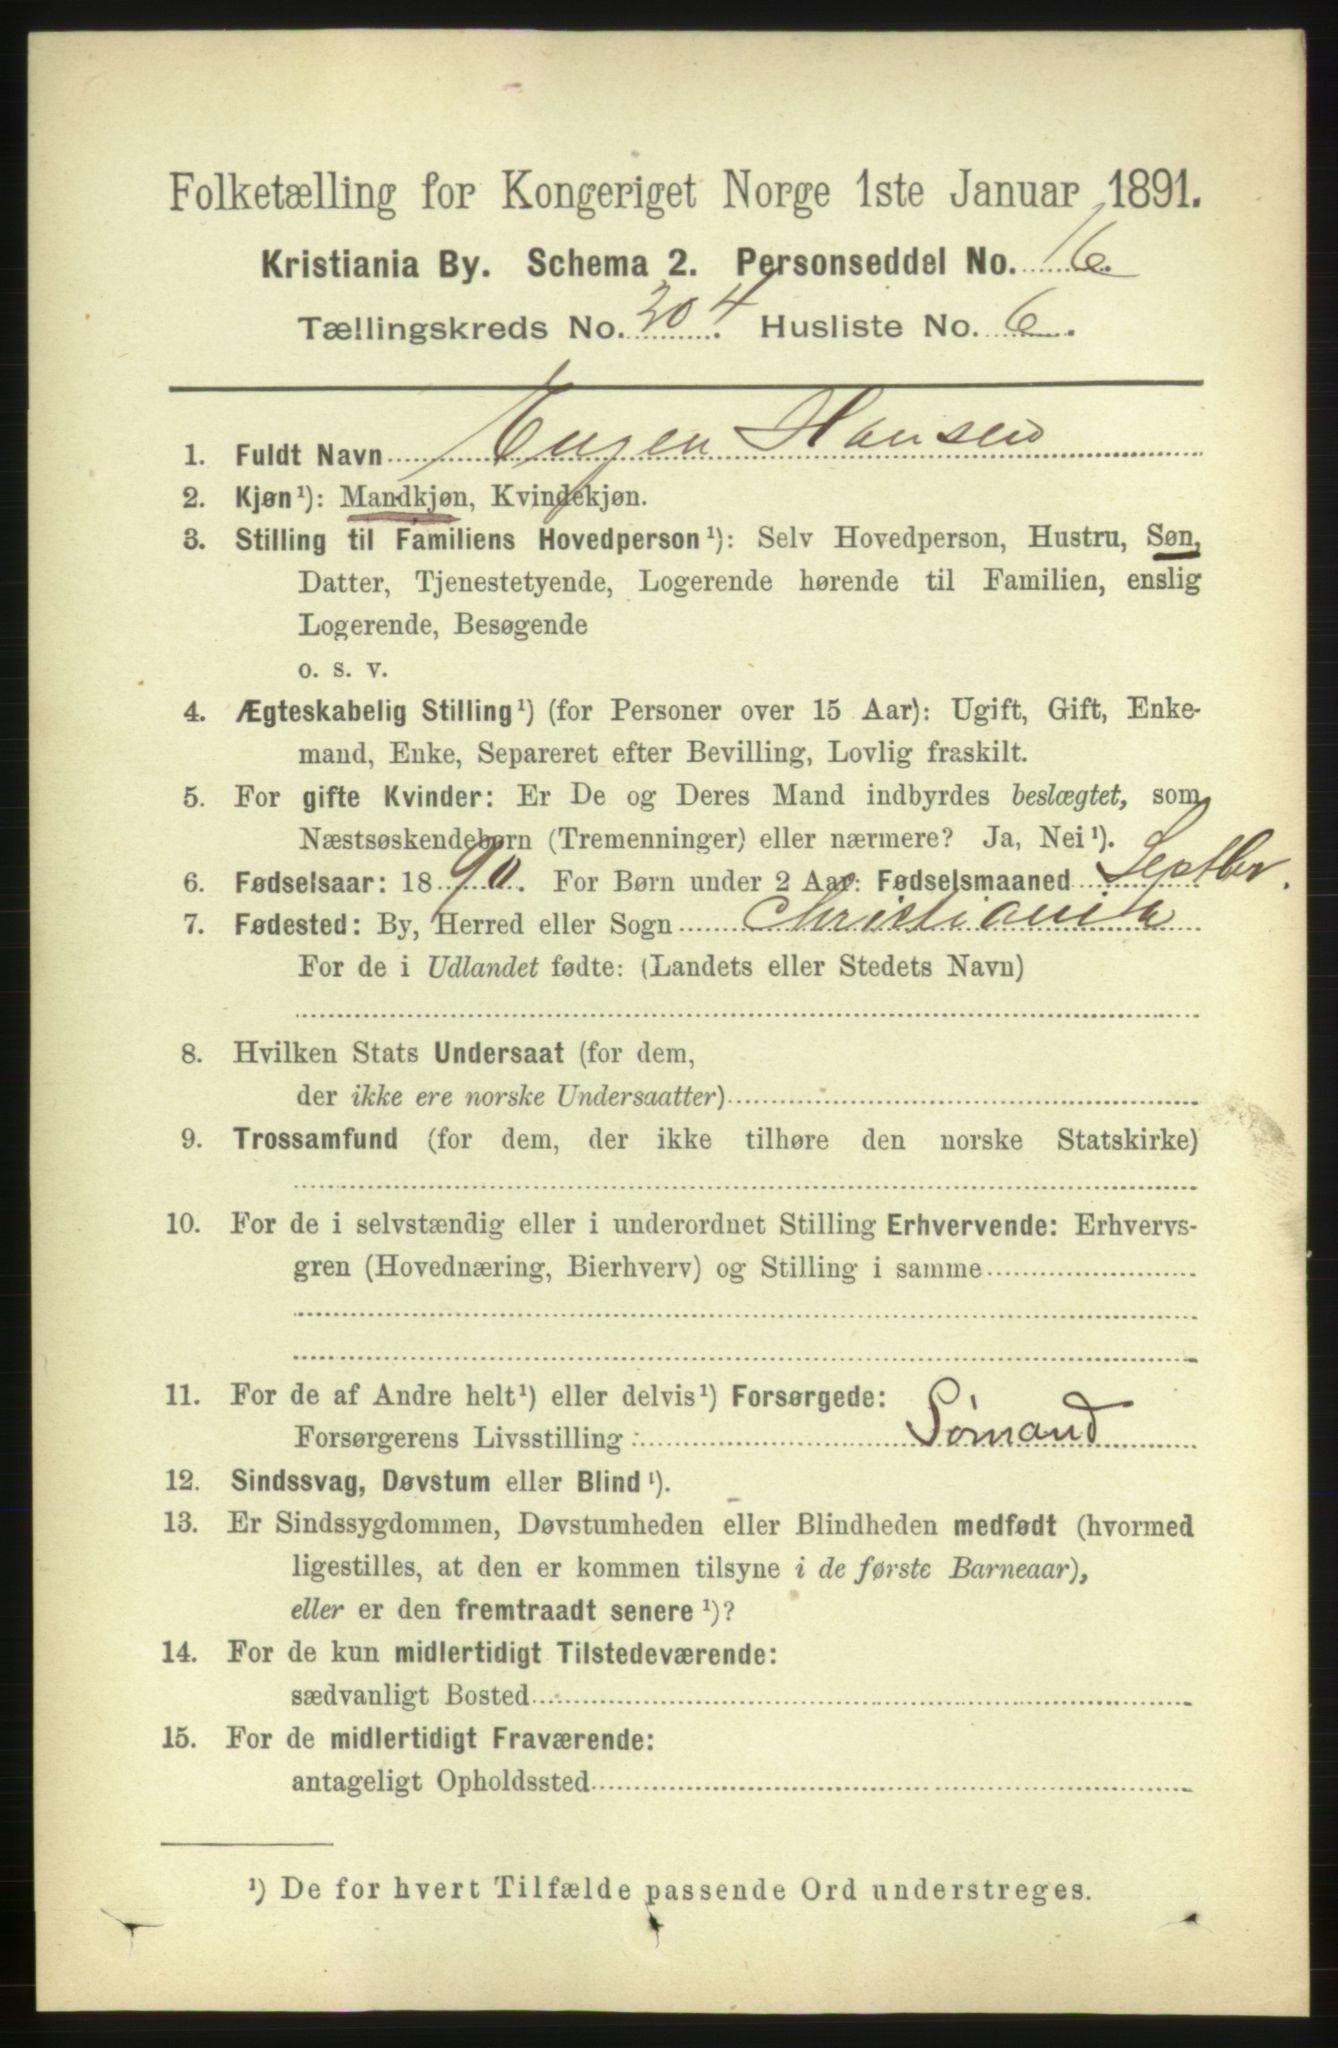 Folketælling for Kongeriget Norge 1ste Januar 1891.
Kristiania By. Schema 2. Personseddel No. 16.
Tællingskreds No. 304. Husliste No. 6.
1. Fuldt Navn Eugen Hansen
2. Kjøn¹): Mandkjøn, Kvindekjøn.
3. Stilling til Familiens Hovedperson¹): Selv Hovedperson, Hustru, Søn,
Datter, Tjenestetyende, Logerende hørende til Familien, enslig
Logerende, Besøgende
o. s. v.
4. Ægteskabelig Stilling¹) (for Personer over 15 Aar): Ugift, Gift, Enke-
mand, Enke, Separeret efter Bevilling, Lovlig fraskilt.
5. For gifte Kvinder: Er De og Deres Mand indbyrdes beslægtet, som
Næstsøskendebørn (Tremenninger) eller nærmere? Ja, Nei¹).
6. Fødselsaar: 1890. For Børn under 2 Aar: Fødselsmaaned Septbr.
7. Fødested: By, Herred eller Sogn Christiania
For de i Udlandet fødte: (Landets eller Stedets Navn)
8. Hvilken Stats Undersaat (for dem,
der ikke ere norske Undersaatter)
9. Trossamfund (for dem, der ikke tilhøre den norske Statskirke)
10. For de i selvstændig eller i underordnet Stilling Erhvervende: Erhvervs-
gren (Hovednæring, Bierhverv) og Stilling i samme
11. For de af Andre helt¹) eller delvis¹) Forsørgede:
Forsørgerens Livsstilling: Sømand
12. Sindssvag, Døvstum eller Blind¹).
13. Er Sindssygdommen, Døvstumheden eller Blindheden medfødt (hvormed
ligestilles, at den er kommen tilsyne i de første Barneaar),
eller er den fremtraadt senere¹)?
14. For de kun midlertidigt Tilstedeværende:
sædvanligt Bosted
15. For de midlertidigt Fraværende:
antageligt Opholdssted
¹) De for hvert Tilfælde passende Ord understreges.